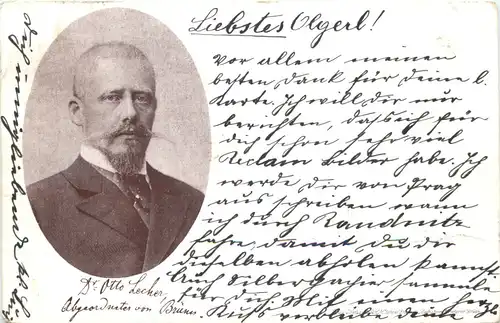 Liebstes Olgerl!
Vor allem meinen
besten Dank für deine l.
Karte. Ich will dir nur
berichten, dass ich für
dich schon sehr viel
Reclam Bilder habe. Ich
werde dir von Prag
aus schreiben wann
ich durch Raudnitz
fahre, damit du dir
dieselben abholen kannst.
Auch Silberpapier sammle
für Dich Mit einem herz.
Kuss verbleibe
Dr. Otto Lecher,
Abgeordneter von Brünn.